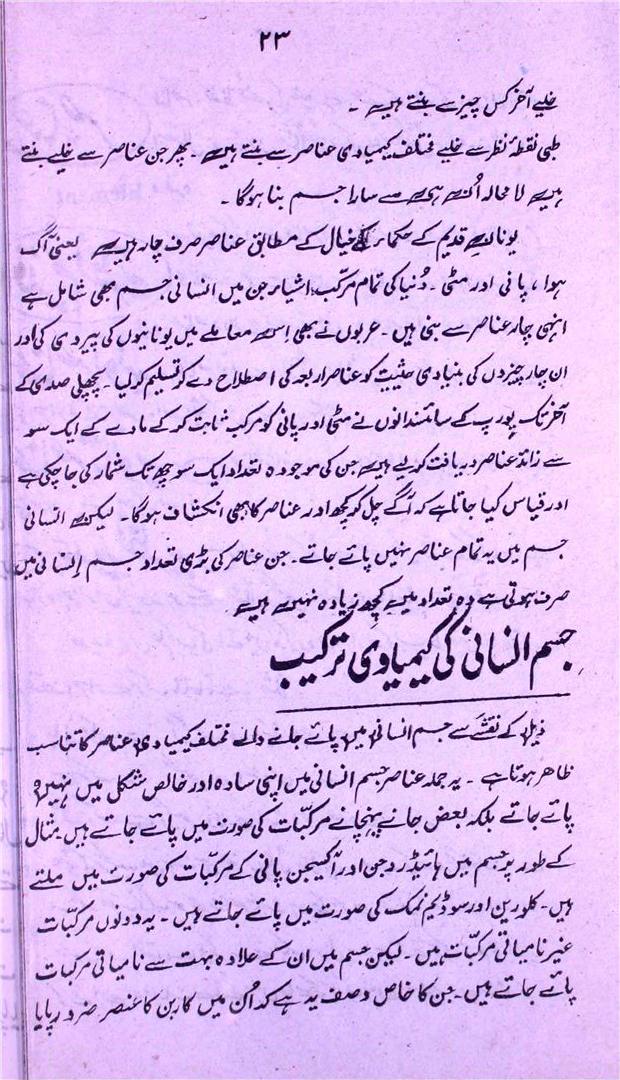 ۲۳
خلیے آخر کس چیز سے بنتے ہیں۔
طبی نقطۂ نظر سے خلیے مختلف کیمیاوی عناصر سے بنتے ہیں۔ پھر جن عناصر سے خلیے بنتے
ہیں لا محالہ اُن ہی سے سارا جسم بنا ہوگا۔
یونان قدیم کے حکماء کے خیال کے مطابق عناصر صرف چار ہیں یعنی آگ
ہوا، پانی اور مٹی۔ دُنیا کی تمام مرکّب اشیاء جن میں انسانی جسم بھی شامل ہے
انہی چار عناصر سے بنی ہیں۔ عربوں نے بھی اِس معاملے میں یونانیوں کی پیروی کی اور
ان چار چیزوں کی بنیادی حثیت کو عناصر اربعہ کی اصطلاح دے کر تسلیم کر لیا۔ پچھلی صدی کے
آخر تک یورپ کے سائنسدانوں نے مٹی اور پانی کو مرکب ثابت کر کے مادے کے ایک سو
سے زائد عناصر دریافت کر لیے ہیں جن کی موجودہ تعداد ایک سو چھ تک شمار کی جا چکی ہے
اور قیاس کیا جاتا ہے کہ آگے چل کر کچھ اور عناصر کا بھی انکشاف ہوگا۔ لیکن انسانی
جسم میں یہ تمام عناصر نہیں پائے جاتے۔ جن عناصر کی بڑی تعداد جسم اِنسانی میں
صرف ہوتی ہے وہ تعداد میں کچھ زیادہ نہیں ہیں
جسم انسانی کی کیمیاوی ترکیب
ذیل کے نقشے سے جسم انسانی میں پائے جانے والے مختلف کیمیاوی عناصر کا تناسب
ظاہر ہوتا ہے۔ یہ جملہ عناصر جسم انسانی میں اپنی سادہ اور خالص شکل میں نہیں
پائے جاتے بلکہ بعض جانے پہنچانے مرکّبات کی صورت میں پائے جاتے ہیں مثال
کے طور پر جسم میں ہائیڈروجن اور آکسیجن پانی کے مرکّبات کی صورت میں ملتے
ہیں۔ کلورین اور سوڈیم نمک کی صورت میں پائے جاتے ہیں۔ یہ دونوں مرکّبات
غیر نامیاتی مرکّبات ہیں۔ لیکن جسم میں ان کے علاوہ بہت سے نامیاتی مرکبات
پائے جاتے ہیں۔ جن کا خاص وصف یہ ہے کہ اُن میں کاربن کا عنصر ضرور پایا